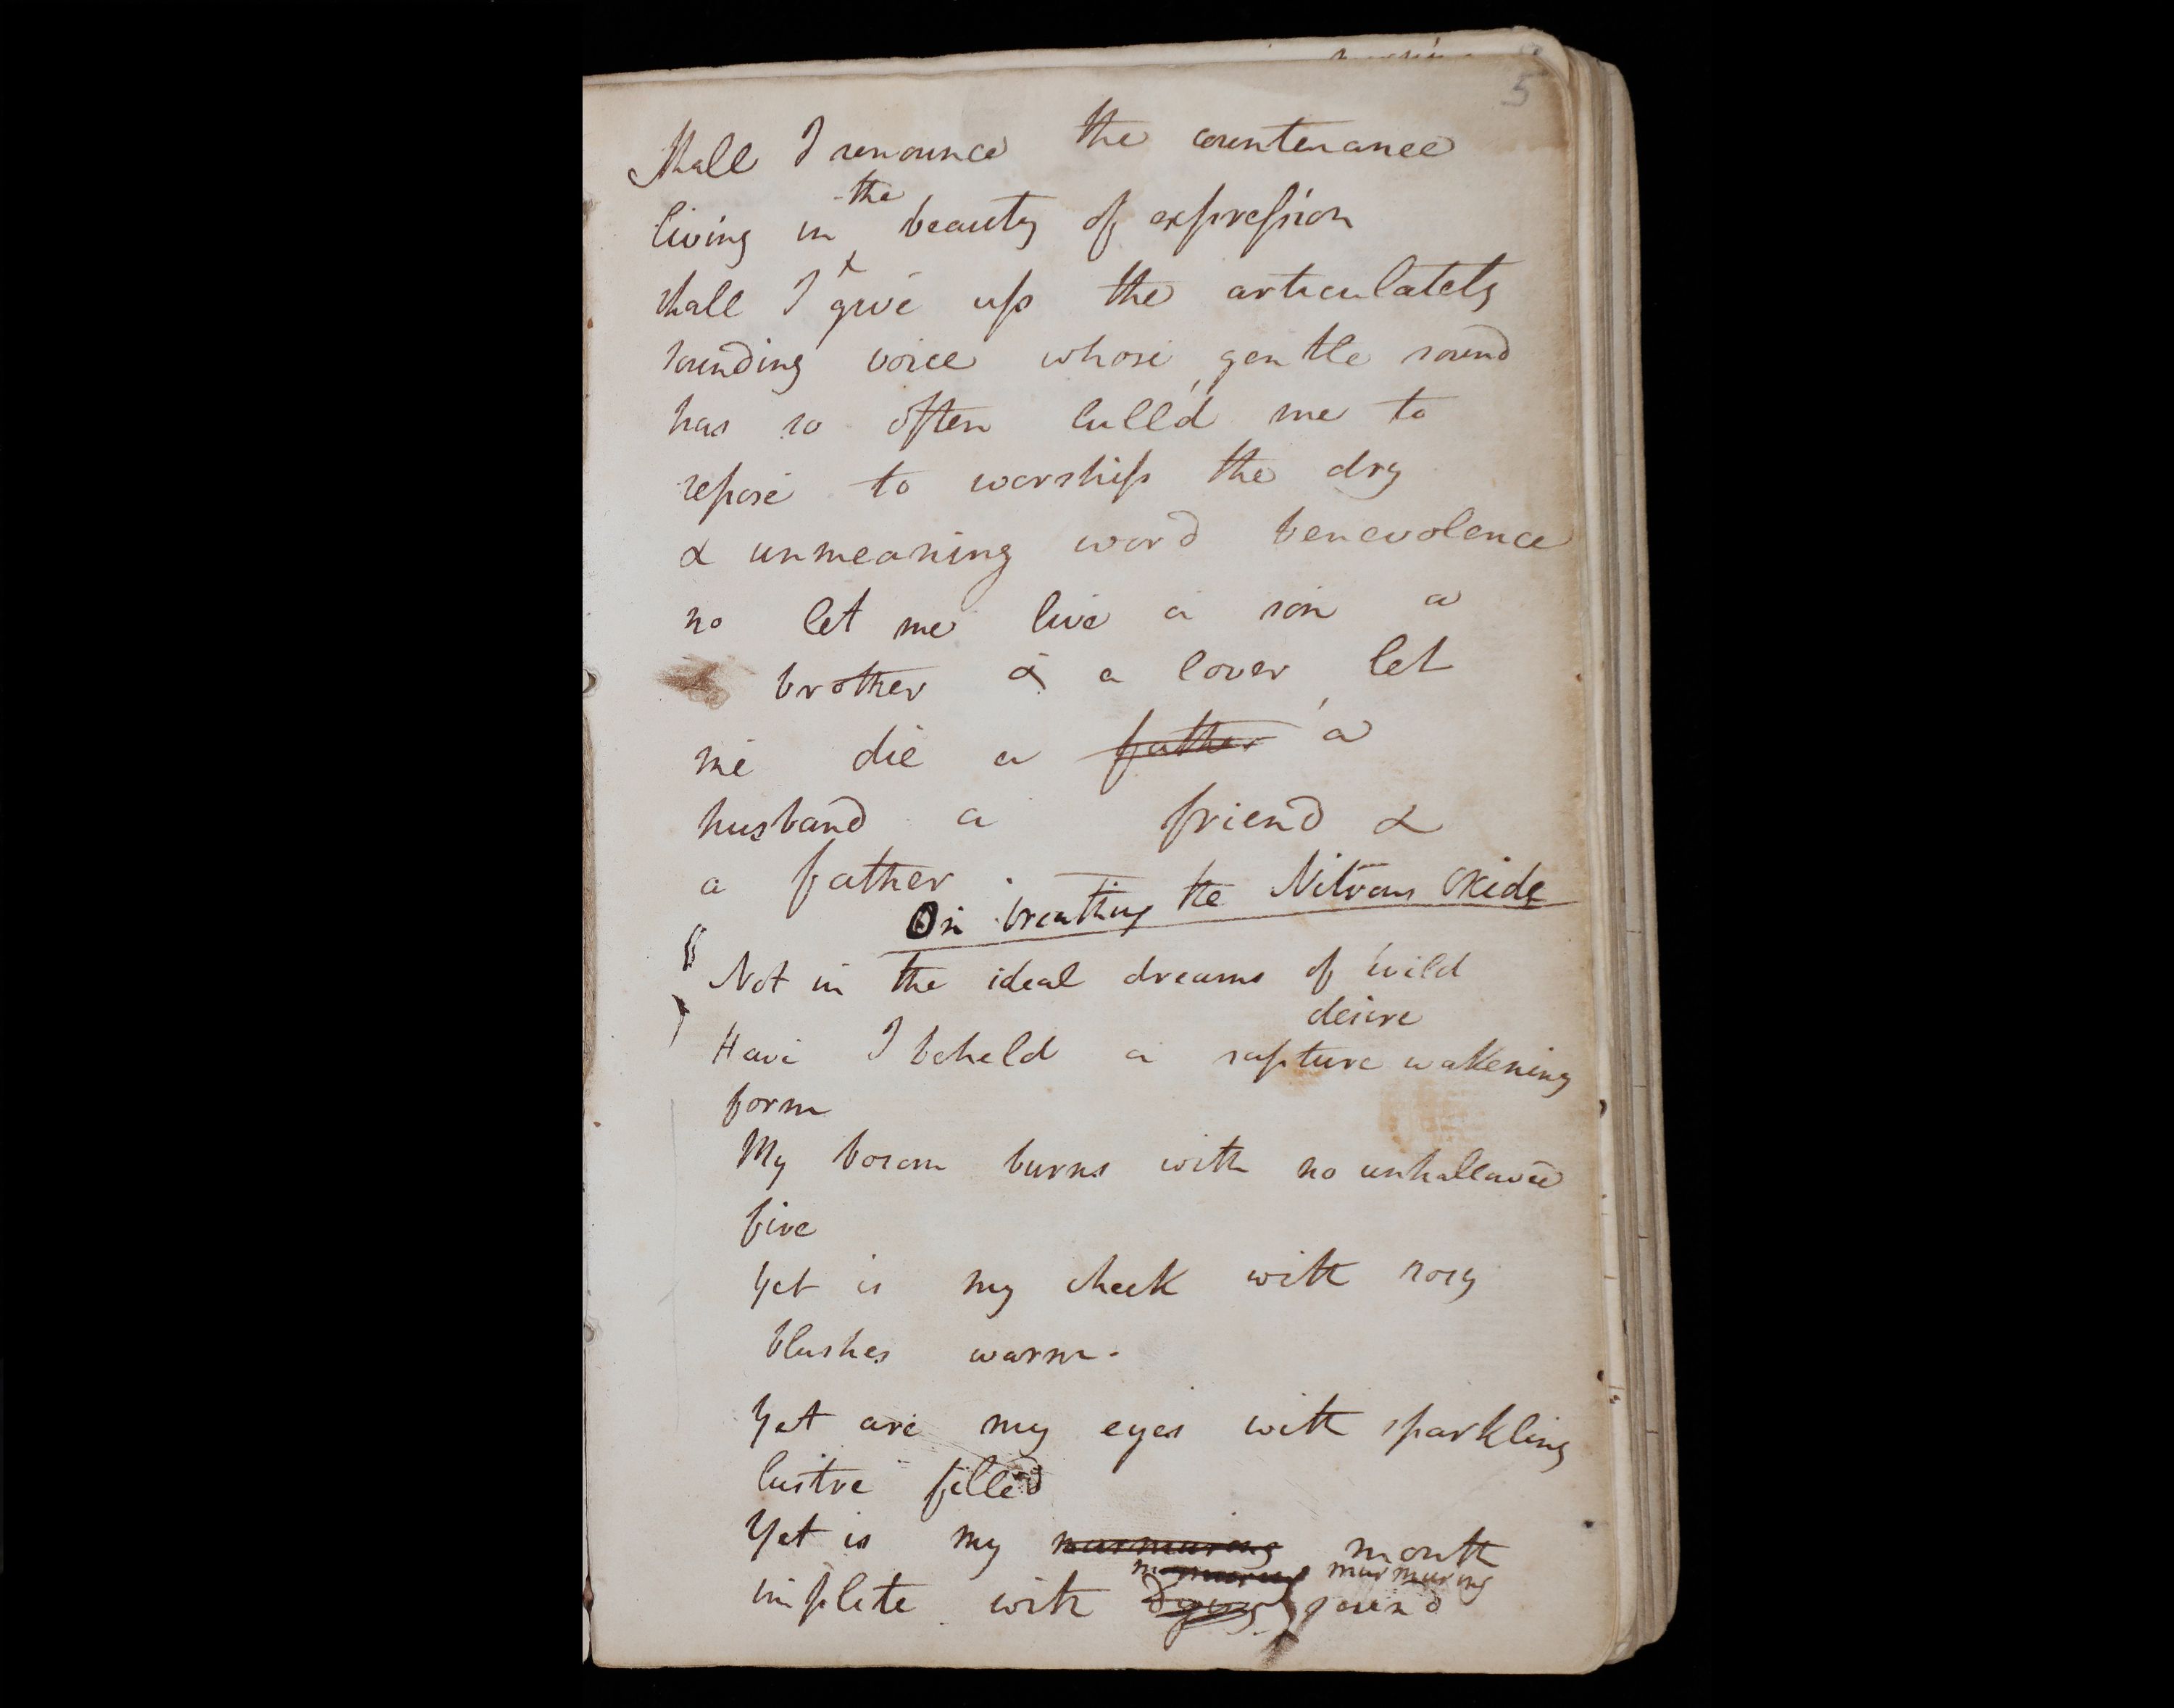 5
Shall I renounce the countenance
the
living in beauty of expression
shall I give up the articulately
sounding voice whose gentle sound
has so often lull'd me to
repose to worship the dry
& unmeaning word benevolence
no let me live a son a
brother & a lover, let
me die a father a
husband a friend &
a father.
On breathing the Nitrous Oxide
Not in the ideal dreams of wild
desire
Have I beheld a rapture wakening
form
My bosom burns with no unhallowed
fire
Yet is my cheek with rosy
blushes warm.
Yet are my eyes with sparkling
lustre filled
Yet is my murmuring mouth
murmuring
implete with dying sound